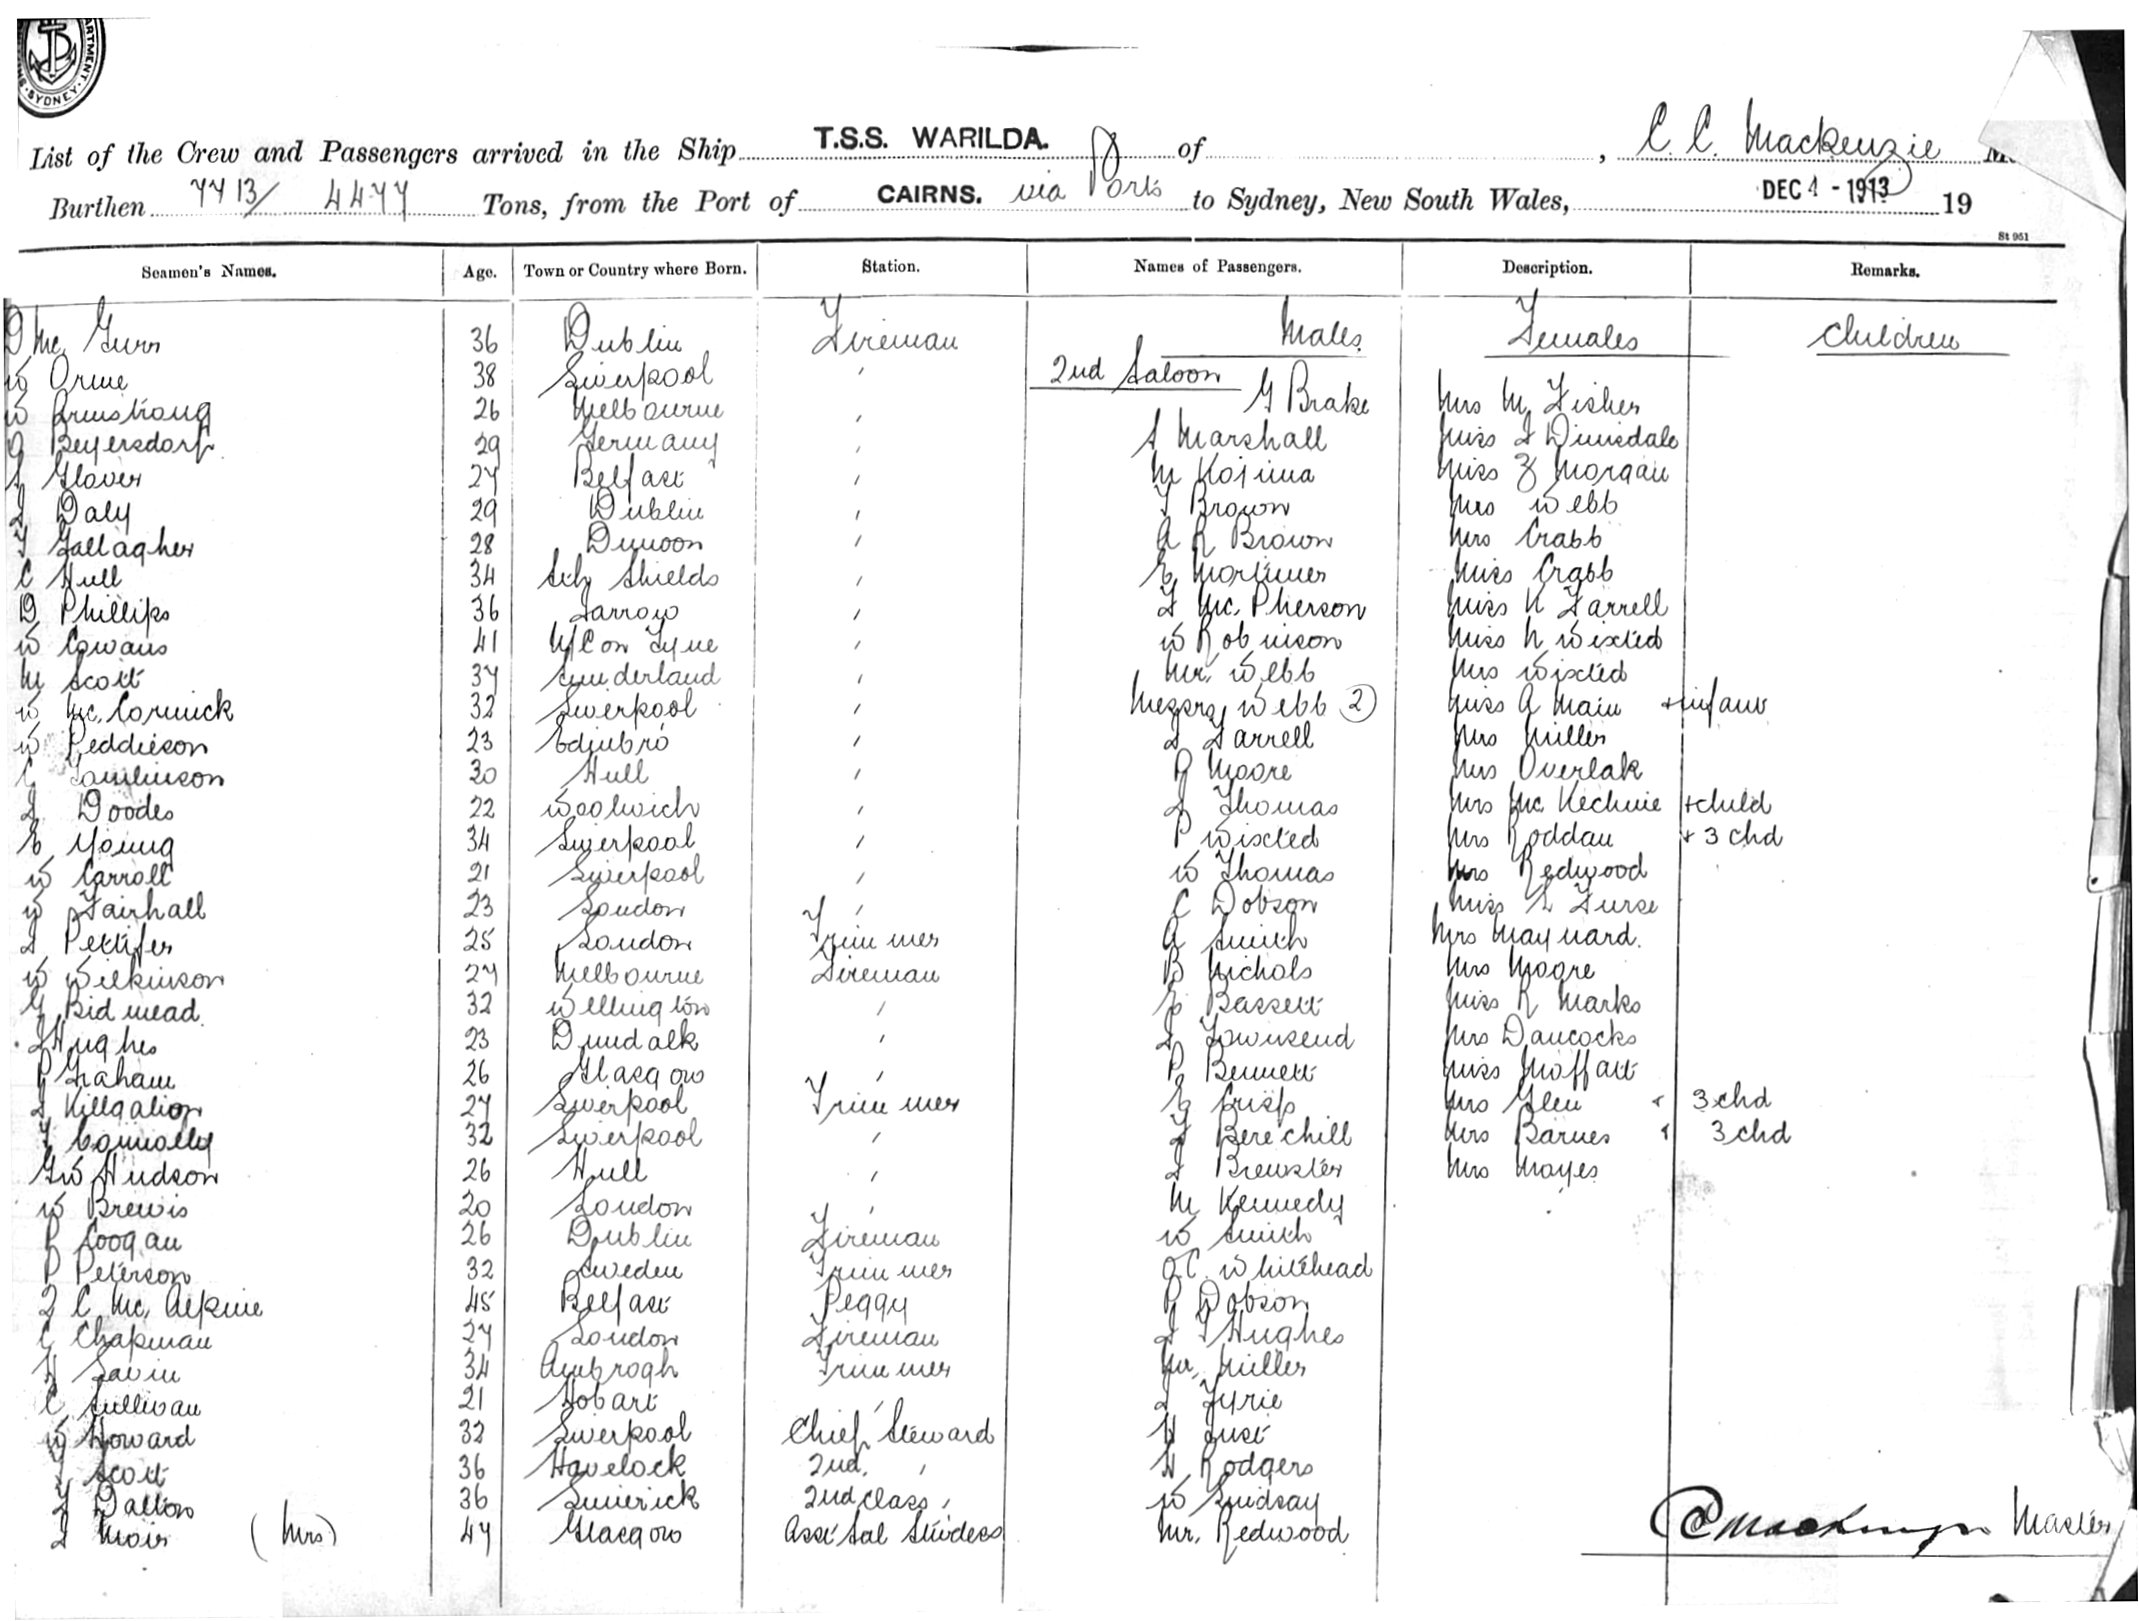 SYDNEY
List of the Crew and Passengers arrived in the Ship T.S.S. WARILDA. of , C. C. Mackenzie
Burthen 7713/ 4477 Tons, from the Port of CAIRNS. via Ports to Sydney, New South Wales, DEC 4 - 1913 19
St 951
Seamen's Names. Age. Town or Country where Born. Station. Names of Passengers. Description. Remarks.
D Mc. Gurr 36 Dublin Fireman Males Females Children
W Orme 38 Liverpool ' 2nd Saloon
W Armstrong 26 Melbourne ' G Brake Mrs M Fisher
G Beyersdorf 29 Germany ' A Marshall Miss I Dinisdale
S Glover 27 Belfast ' M Kojima Miss Z Morgan
J Daly 29 Dublin ' T Brown Mrs Webb
T Gallagher 28 Dunoon ' A R Brown Mrs Crabb
C Hull 34 Sth Shields ' E Mortimer Miss Crabb
D Phillips 36 Jarrow ' J Mc. Pherson Miss K Farrell
W Cowans 41 N/C on Tyne ' W Robinson Miss N Wixted
M Scott 37 Sunderland ' Mr. Webb Mrs Wixted
W Mc. Cormick 32 Liverpool ' Messrs Webb (2) Miss A Main + infant
W Peddieson 23 Edinbro ' J Farrell Mrs Miller
C Tomlinson 30 Hull ' R Moore Mrs Overlak
J Doodes 22 Woolwich ' J Thomas Mrs Mc Kechnie + child
E Young 34 Liverpool ' P Wixted Mrs Roddan + 3 chd
W Carroll 21 Liverpool ' W Thomas Mrs Redwood
W Fairhall 23 London ' C Dobson Miss L Furse
J Pettifer 25 London Trimmer A Smith Mrs Maynard.
W Wilkinson 27 Melbourne Fireman B Nichols Mrs Moore
G Bidmead. 32 Wellington ' E Bassett Miss R Marks
J Hughes 23 Dundalk ' J Townsend Mrs Dancocks
P Graham 26 Glasgow ' P Bennett Miss Moffatt
J Killgalion 27 Liverpool Trimmer E Crisp Mrs Glen + 3 chd
T Connolly 32 Liverpool ' J Berechill Mrs Barnes + 3 chd
G W Hudson 26 Hull ' J Brewster Mrs Mayes
W Brewis 20 London ' M Kennedy
P Coogan 26 Dublin Fireman W Smith
P Peterson 32 Sweden Trimmer O C. Whitehead
J C Mc. Alpine 45 Belfast Peggy P Dobson
C Chapman 27 London Fireman J T Hughes
H Savin 34 Ambrogh Trimmer Mr. Miller
C Sullivan 21 Hobart ' J Tyrie
W Howard 32 Liverpool Chief Steward H Just
J Scott 36 Havelock 2nd. ' H Rodgers
J Dalton 36 Limerick 2nd class ' W Lindsay
J Moir (Mrs) 47 Glasgow Asst Sal Stwdess Mr. Redwood
C Mackenzie Master